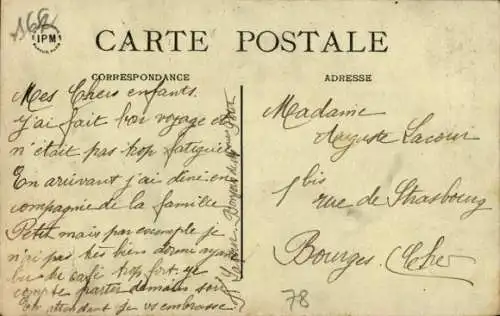 162
IPM
CARTE POSTALE
CORRESPONDANCE
ADRESSE
Mes Chers enfants.
J'ai fait bon voyage et
n'était pas trop fatiguée
En arrivant j'ai diné en
compagnie de la famille
Petit mais par exemple je
n'ai pas très bien dormi ayant
bu du café trop fort. je
compte partir demain soir
En attendant je vs embrasse
Madame
Auguste Lacour
1 bis
rue de Strasbourg
Bourges. Cher
78